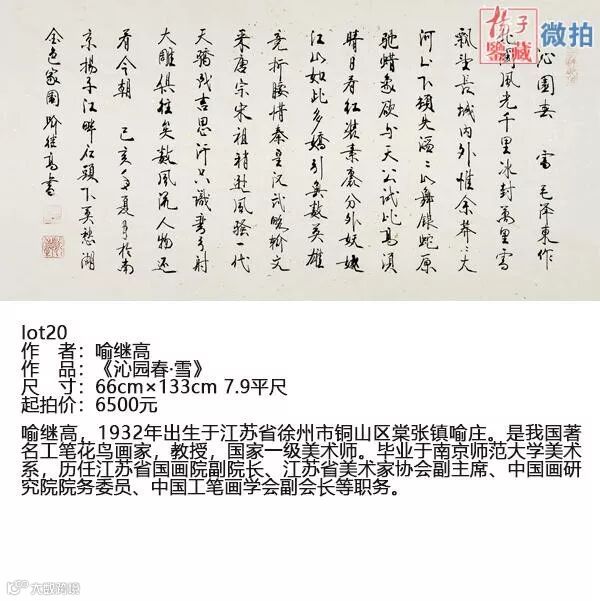 扬子
鉴藏
微拍
沁園春 雪 毛澤東作
北國風光千里冰封萬里雪
飄望長城内外惟余莽莽大
河上下頓失滔滔山舞銀蛇原
馳蜡象欲与天公试比高須
晴日看红装素裹分外妖娆
江山如此多嬌引無數英雄
竞折腰惜秦皇汉武略输文
采唐宗宋祖稍逊風騷一代
天驕成吉思汗只識弯弓射
大雕俱往矣數風流人物还
看今朝 己亥年夏月於南
京揚子江畔石頭下莫愁湖
金色家園 喻继高書
lot20
作 者：喻继高
作 品：《沁园春·雪》
尺 寸：66cm×133cm 7.9平尺
起拍价：6500元
喻继高，1932年出生于江苏省徐州市铜山区棠张镇喻庄。是我国著
名工笔花鸟画家，教授，国家一级美术师。毕业于南京师范大学美术
系，历任江苏省国画院副院长、江苏省美术家协会副主席、中国画研
究院院务委员、中国工笔画学会副会长等职务。
大数跨境